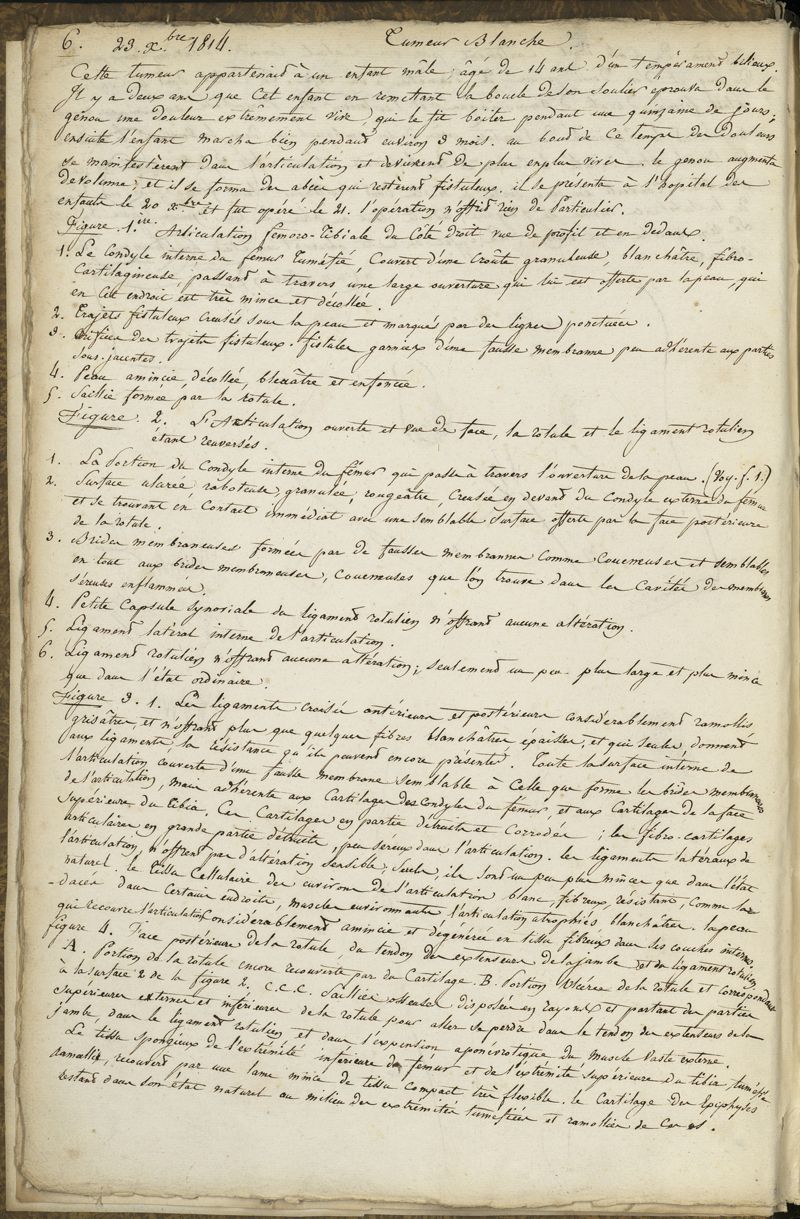 6. 23. xbre 1814. Tumeur Blanche.
Cette tumeur appartenait à un enfant mâle, âgé de 14 ans d'un tempérament bilieux.
Il y a deux ans que cet enfant en remettant la boucle de son soulier éprouva dans le
genou une douleur extrêmement vive, qui le fit boiter pendant une quinzaine de jours;
ensuite l'enfant marcha bien pendant environ 3 mois. au bout de ce temps des douleurs
se manifestèrent dans l'articulation et devinrent de plus en plus vives. le genou augmenta
de volume, et il se forma des abcès qui restèrent fistuleux. il se présenta à l'hopital des
enfants le 20 xbre et fut opéré le 21. l'opération n'offrit rien de Particulier.
Figure 1.ire Articulation femoro-tibiale du Côté droit vue de profil et en dedans.
1. Le Condyle interne du fémur tuméfié, Couvert d'une croûte granuleuse, blanchâtre, fibro-
Cartilagineuse, passant à travers une large ouverture qui lui est offerte par la peau, qui
en cet endroit est très mince et décollée.
2. Trajets fistuleux creusés sous la peau et marqués par des lignes ponctuées.
3. Orifices des trajets fistuleux. fistules garnies d'une fausse membranne peu adhérente aux parties
sous-jacentes.
4. Peau amincie, décollée, bleuâtre et enfoncée.
5. Saillie formée par la rotule.
Figure 2. L'Articulation ouverte et vue de face, la rotule et le ligament rotulien
étant renversés.
1. La Portion du Condyle interne du fémur qui passe à travers l'ouverture de la peau. (Voy. f. 1.)
2. Surface ulcérée, raboteuse, granulée, rougeâtre, Creusée en devant du Condyle externe du fémur
et se trouvant en Contact immédiat avec une semblable Surface offerte par la face postérieure
de la rotule.
3. Brides membraneuses formées par de fausses membrannes comme Coueneuses et semblables
en tout aux brides membraneuses, Coueneuses que l'on trouve dans les Cavités des membranes
séreuses enflammées.
4. Petite Capsule synoviale du ligament rotulien n'offrant aucune altération.
5. Ligament latéral interne de l'articulation.
6. Ligament rotulien n'offrant aucune altération; seulement un peu plus large et plus mince
que dans l'état ordinaire.
Figure 3. 1. Les ligaments croisés antérieurs et postérieurs considérablement ramollis
grisâtres, et n'offrant plus que quelques fibres blanchâtres épaisses, et qui seules, donnent
aux ligaments, la résistance qu'ils peuvent encore présenter. Toute la surface interne de
l'articulation couverte d'une fausse membrane semblable à Celle que forme les brides membraneuses
de l'articulation, mais adhérente aux Cartilages des condyles du fémur, et aux Cartilages de la face
supérieure du tibia. Ces Cartilages en partie détruits et Corrodés; les fibro-cartilages
articulaires en grande partie détruits, peu séreux dans l'articulation. les ligaments latéraux de
l'articulation, n'offrent pas d'altération sensible, seuls, ils sont un peu plus minces que dans l'état
naturel. le tissu Cellulaire des environs de l'articulation blanc, fibreux, résistant, comme lar-
-dacée dans certains endroits, muscles environnants l'articulation atrophiés, blanchâtres. la peau
qui recouvre l'articulation Considérablement amincie et dégénérée en tissu fibreux dans ses couches internes.
figure 4. Face postérieure de la rotule, du tendon des extenseurs de la jambe et du ligament rotulien.
A. Portion de la rotule encore recouverte par du Cartilage. B. Portion Ulcérée de la rotule et correspondant
à la surface 2 de la figure 2. C.C.C. Saillies osseuses disposées en rayons et partant des parties
supérieures externes et inférieures de la rotule pour aller se perdre dans le tendon des extenseurs de la
jambe, dans le ligament rotulien et dans l'expension aponévrotique du muscle Vaste externe.
Le tissu spongieux de l'extrémité inférieure du fémur et de l'extrémité supérieure du tibia tuméfié
ramollis, recouvert par une lame mince de tissu compact très flexible. le Cartilage des Epiphyses
restant dans son état naturel au milieu des extrémités tuméfiées et ramollies de Ces os.